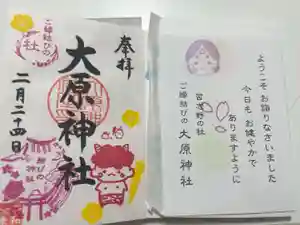 奉拝
大原神社
二月二十四日
ご縁結びの
社
ようこそお詣りなさいました
今日もお健やかで
ありますように
宮津野の社
ご縁結びの 大原神社